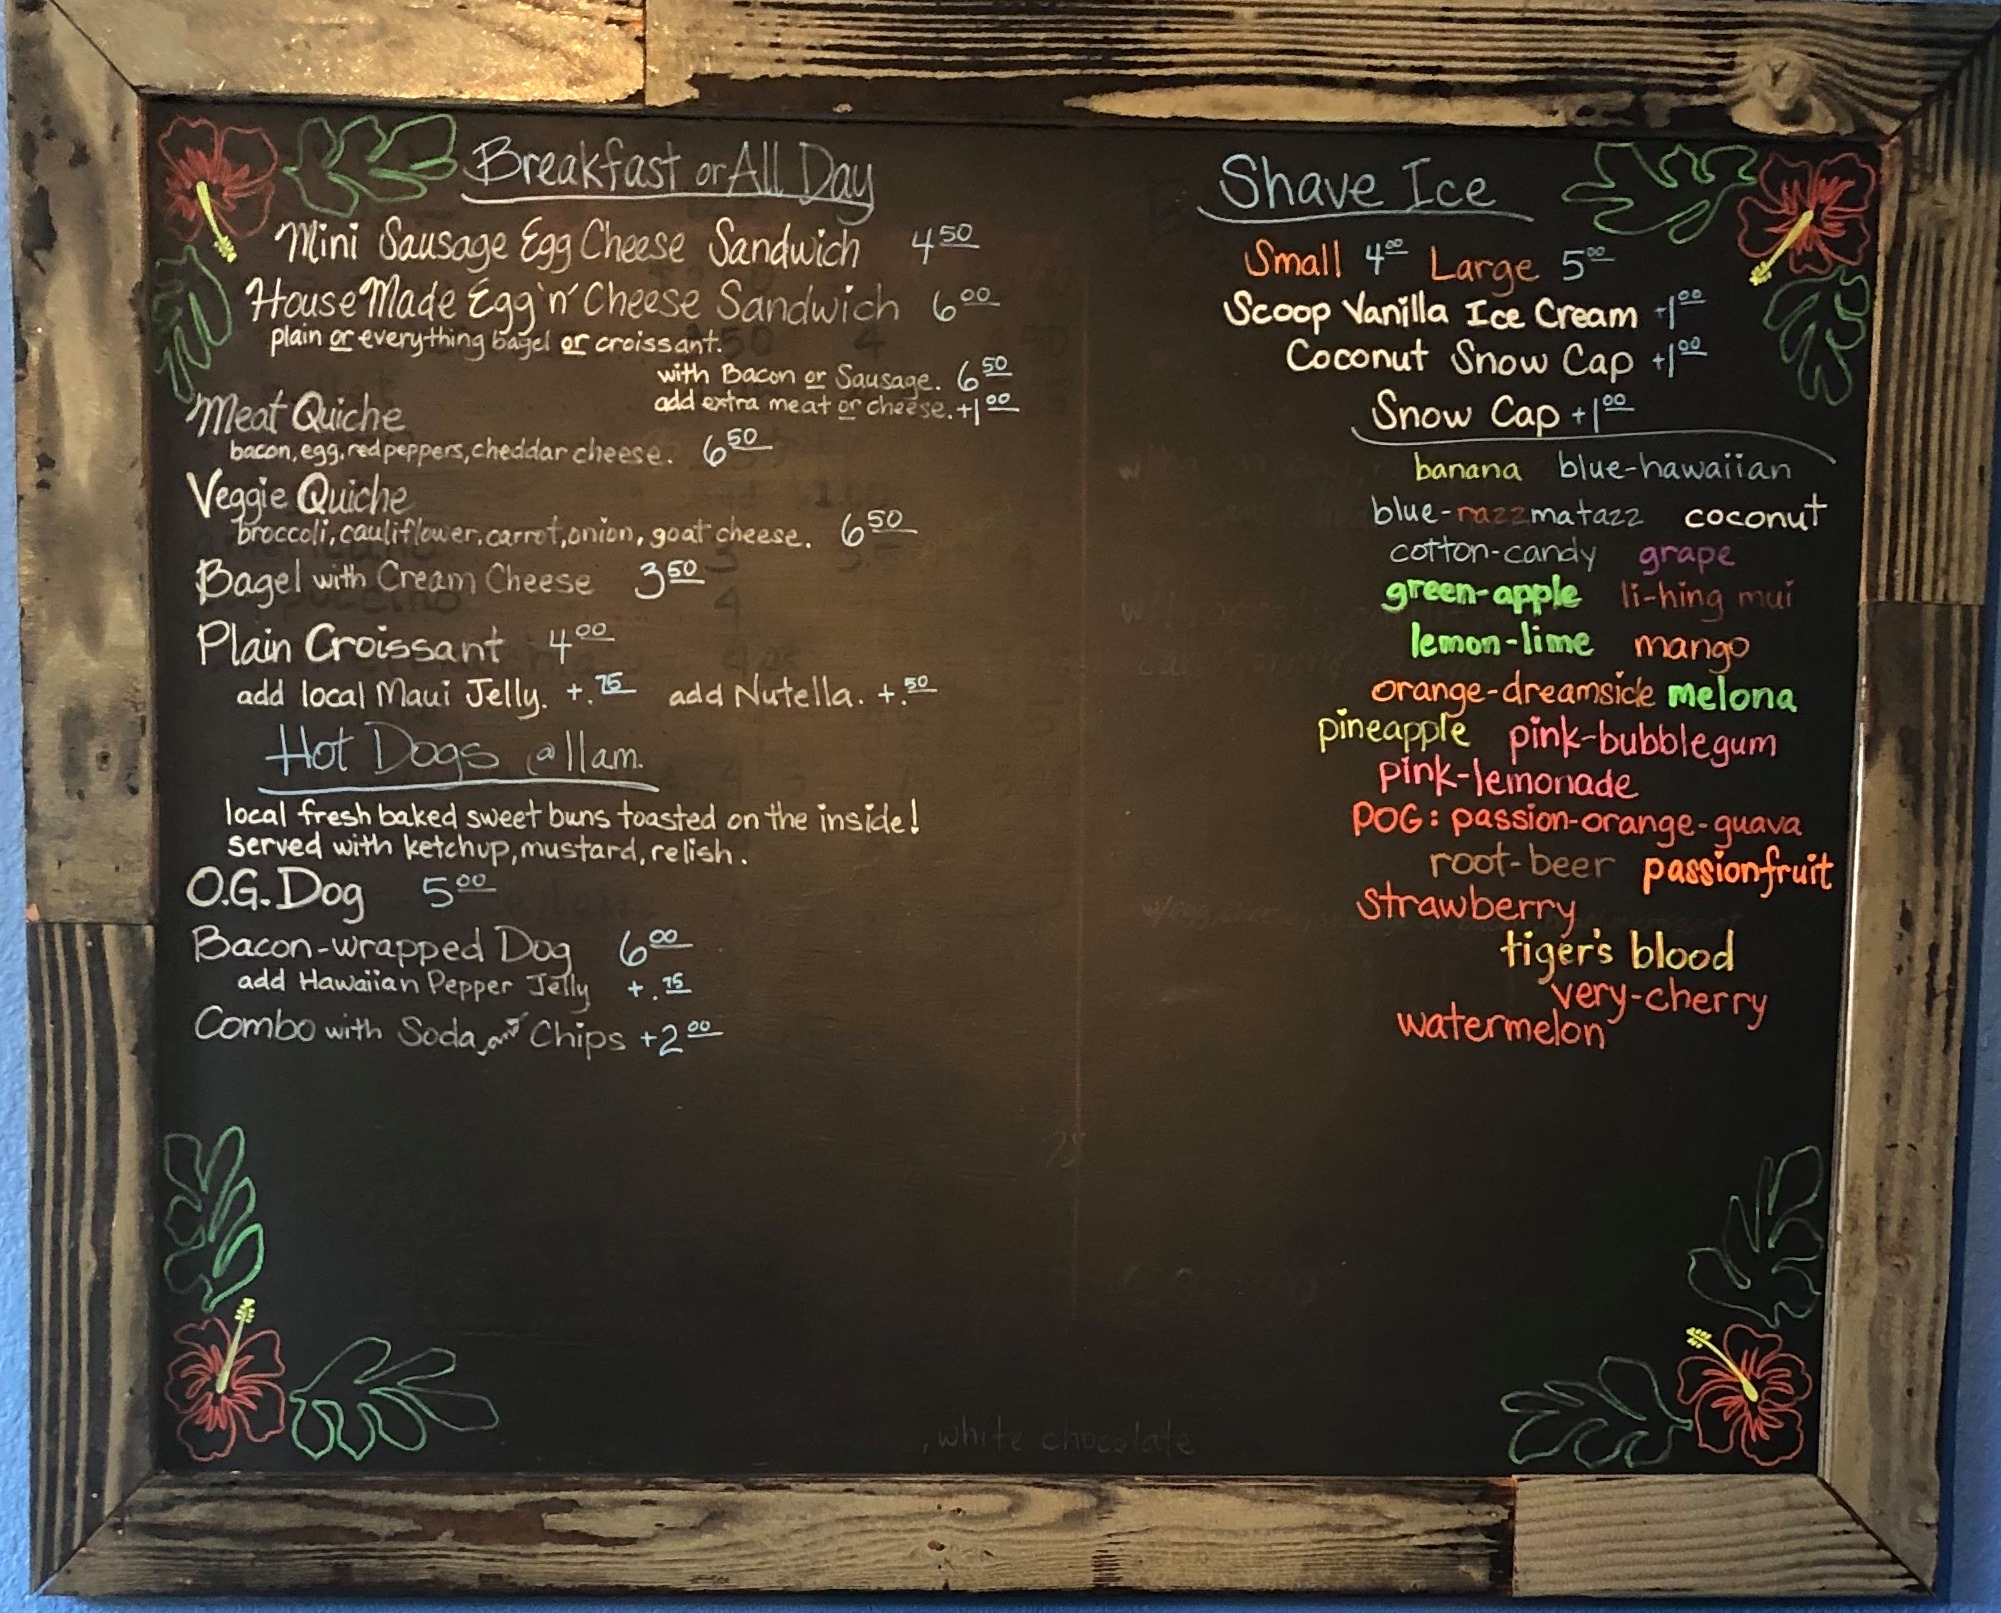 Breakfast or All Day
Mini Sausage Egg Cheese Sandwich 4 50
House Made Egg 'n' Cheese Sandwich 6 00
plain or everything bagel or croissant.
with Bacon or Sausage. 6 50
add extra meat or cheese. +1 00
Meat Quiche
bacon, egg, red peppers, cheddar cheese. 6 50
Veggie Quiche
broccoli, cauliflower, carrot, onion, goat cheese. 6 50
Bagel with Cream Cheese 3 50
Plain Croissant 4 00
add local Maui Jelly. +.75 add Nutella. +.50
Hot Dogs @ 11am.
local fresh baked sweet buns toasted on the inside!
served with ketchup, mustard, relish.
O.G. Dog 5 00
Bacon-wrapped Dog 6 00
add Hawaiian Pepper Jelly +.75
Combo with Soda and Chips +2 00
Shave Ice
Small 4 00 Large 5 00
Scoop Vanilla Ice Cream +1 00
Coconut Snow Cap +1 00
Snow Cap +1 00
banana blue-hawaiian
blue-razzmatazz coconut
cotton-candy grape
green-apple li-hing mui
lemon-lime mango
orange-dreamsicle melona
pineapple pink-bubblegum
pink-lemonade
POG: passion-orange-guava
root-beer passionfruit
strawberry
tiger's blood
very-cherry
watermelon
, white chocolate